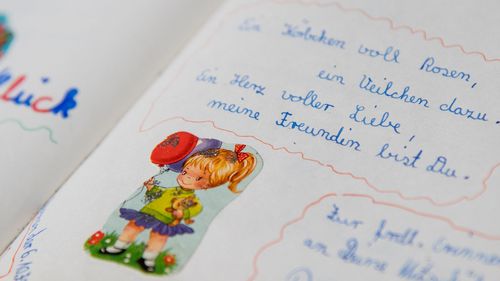 lück
Ein Körbchen voll Rosen,
ein Veilchen dazu.
Ein Herz voller Liebe,
meine Freundin bist Du.
Zur frdl.
an Deine